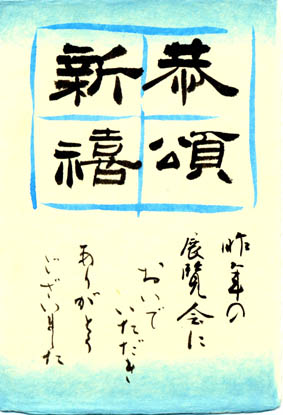 恭頌
新禧
昨年の
展覧会に
おいで
いただき
ありがとう
ございました